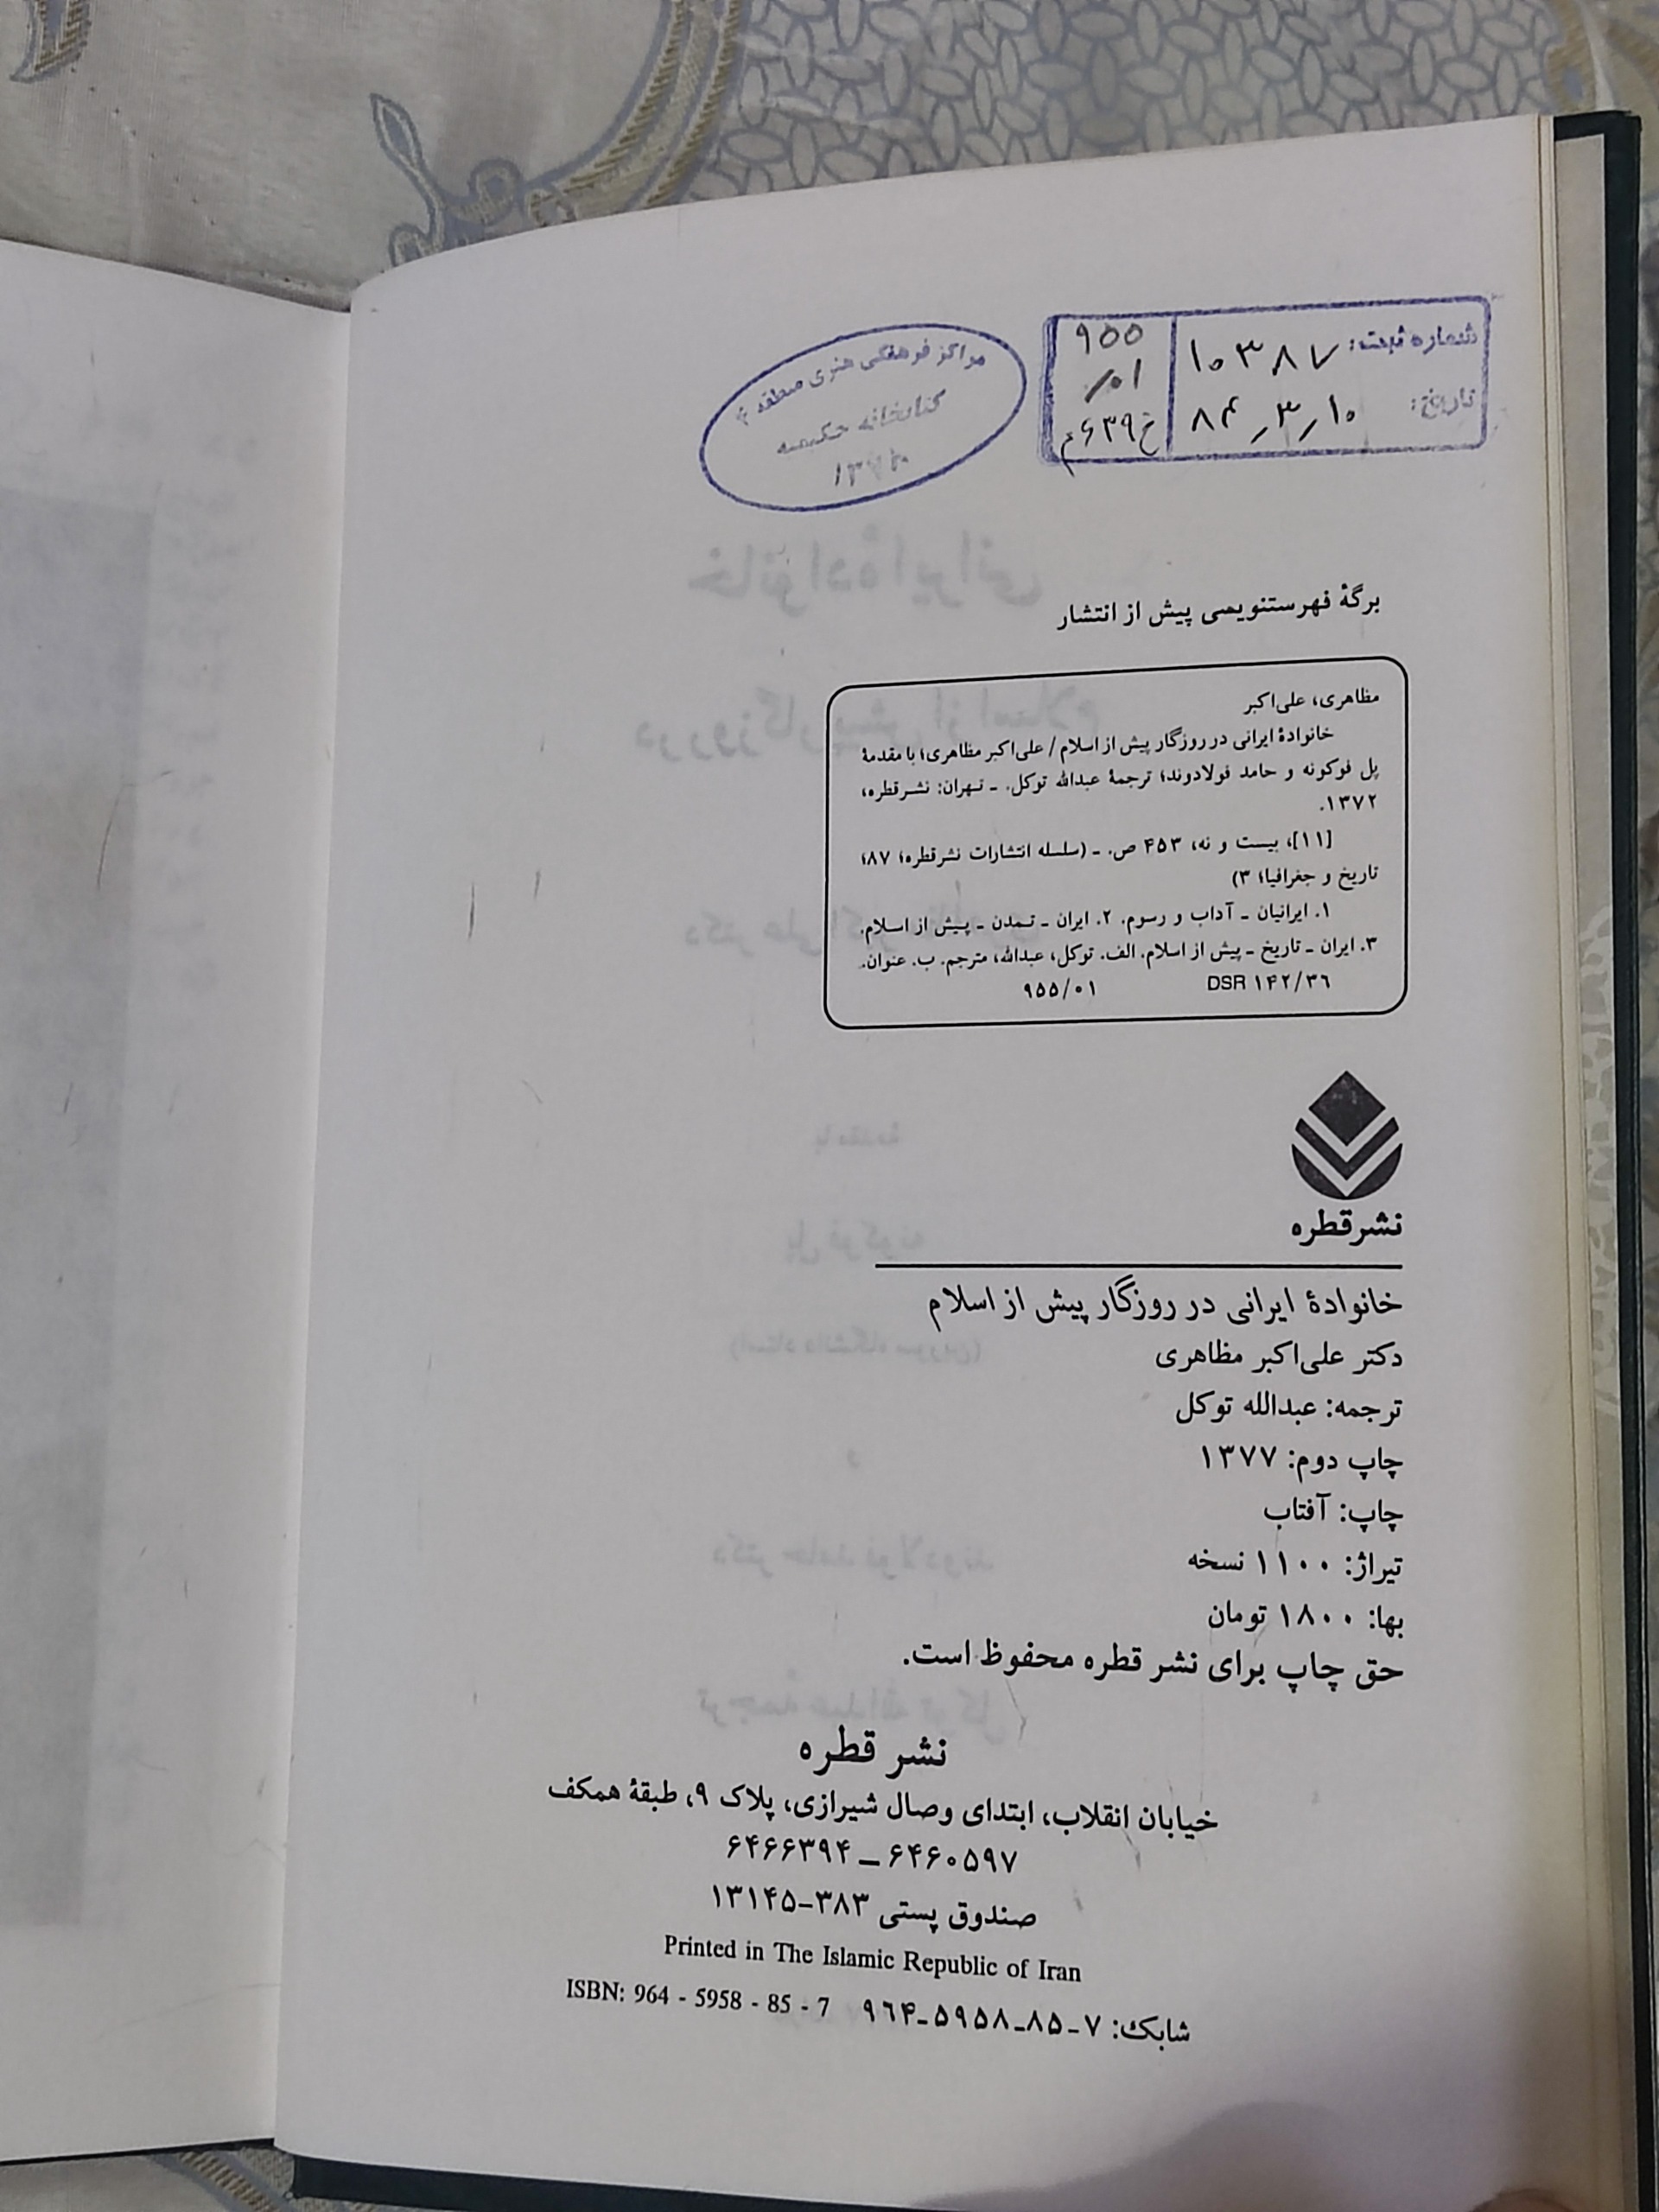 شماره ثبت: ۱۰۳۸۷
تاریخ: ۸۴٫۳٫۱۰
۹۵۵
/۰۱
خ۶۳۹م
مراکز فرهنگی هنری منطقه ۶
کتابخانه حکیمیه
برگهٔ فهرستنویسی پیش از انتشار
مظاهری، علی‌اکبر
خانوادهٔ ایرانی در روزگار پیش از اسلام / علی‌اکبر مظاهری؛ با مقدمهٔ
پل فوکونه و حامد فولادوند؛ ترجمهٔ عبدالله توکل. ـ تهران: نشر قطره،
۱۳۷۲.
[۱۱]، بیست و نه، ۴۵۳ ص. ـ (سلسله انتشارات نشر قطره؛ ۸۷؛
تاریخ و جغرافیا؛ ۳)
۱. ایرانیان ـ آداب و رسوم. ۲. ایران ـ تمدن ـ پیش از اسلام.
۳. ایران ـ تاریخ ـ پیش از اسلام. الف. توکل، عبدالله، مترجم. ب. عنوان.
DSR ۱۴۲/۳۶ ۹۵۵/۰۱
نشر قطره
خانوادهٔ ایرانی در روزگار پیش از اسلام
دکتر علی‌اکبر مظاهری
ترجمه: عبدالله توکل
چاپ دوم: ۱۳۷۷
چاپ: آفتاب
تیراژ: ۱۱۰۰ نسخه
بها: ۱۸۰۰ تومان
حق چاپ برای نشر قطره محفوظ است.
نشر قطره
خیابان انقلاب، ابتدای وصال شیرازی، پلاک ۹، طبقهٔ همکف
۶۴۶۰۵۹۷ ـ ۶۴۶۶۳۹۴
صندوق پستی ۳۸۳-۱۳۱۴۵
Printed in The Islamic Republic of Iran
شابک: ۷-۸۵-۵۹۵۸-۹۶۴ ISBN: 964 - 5958 - 85 - 7